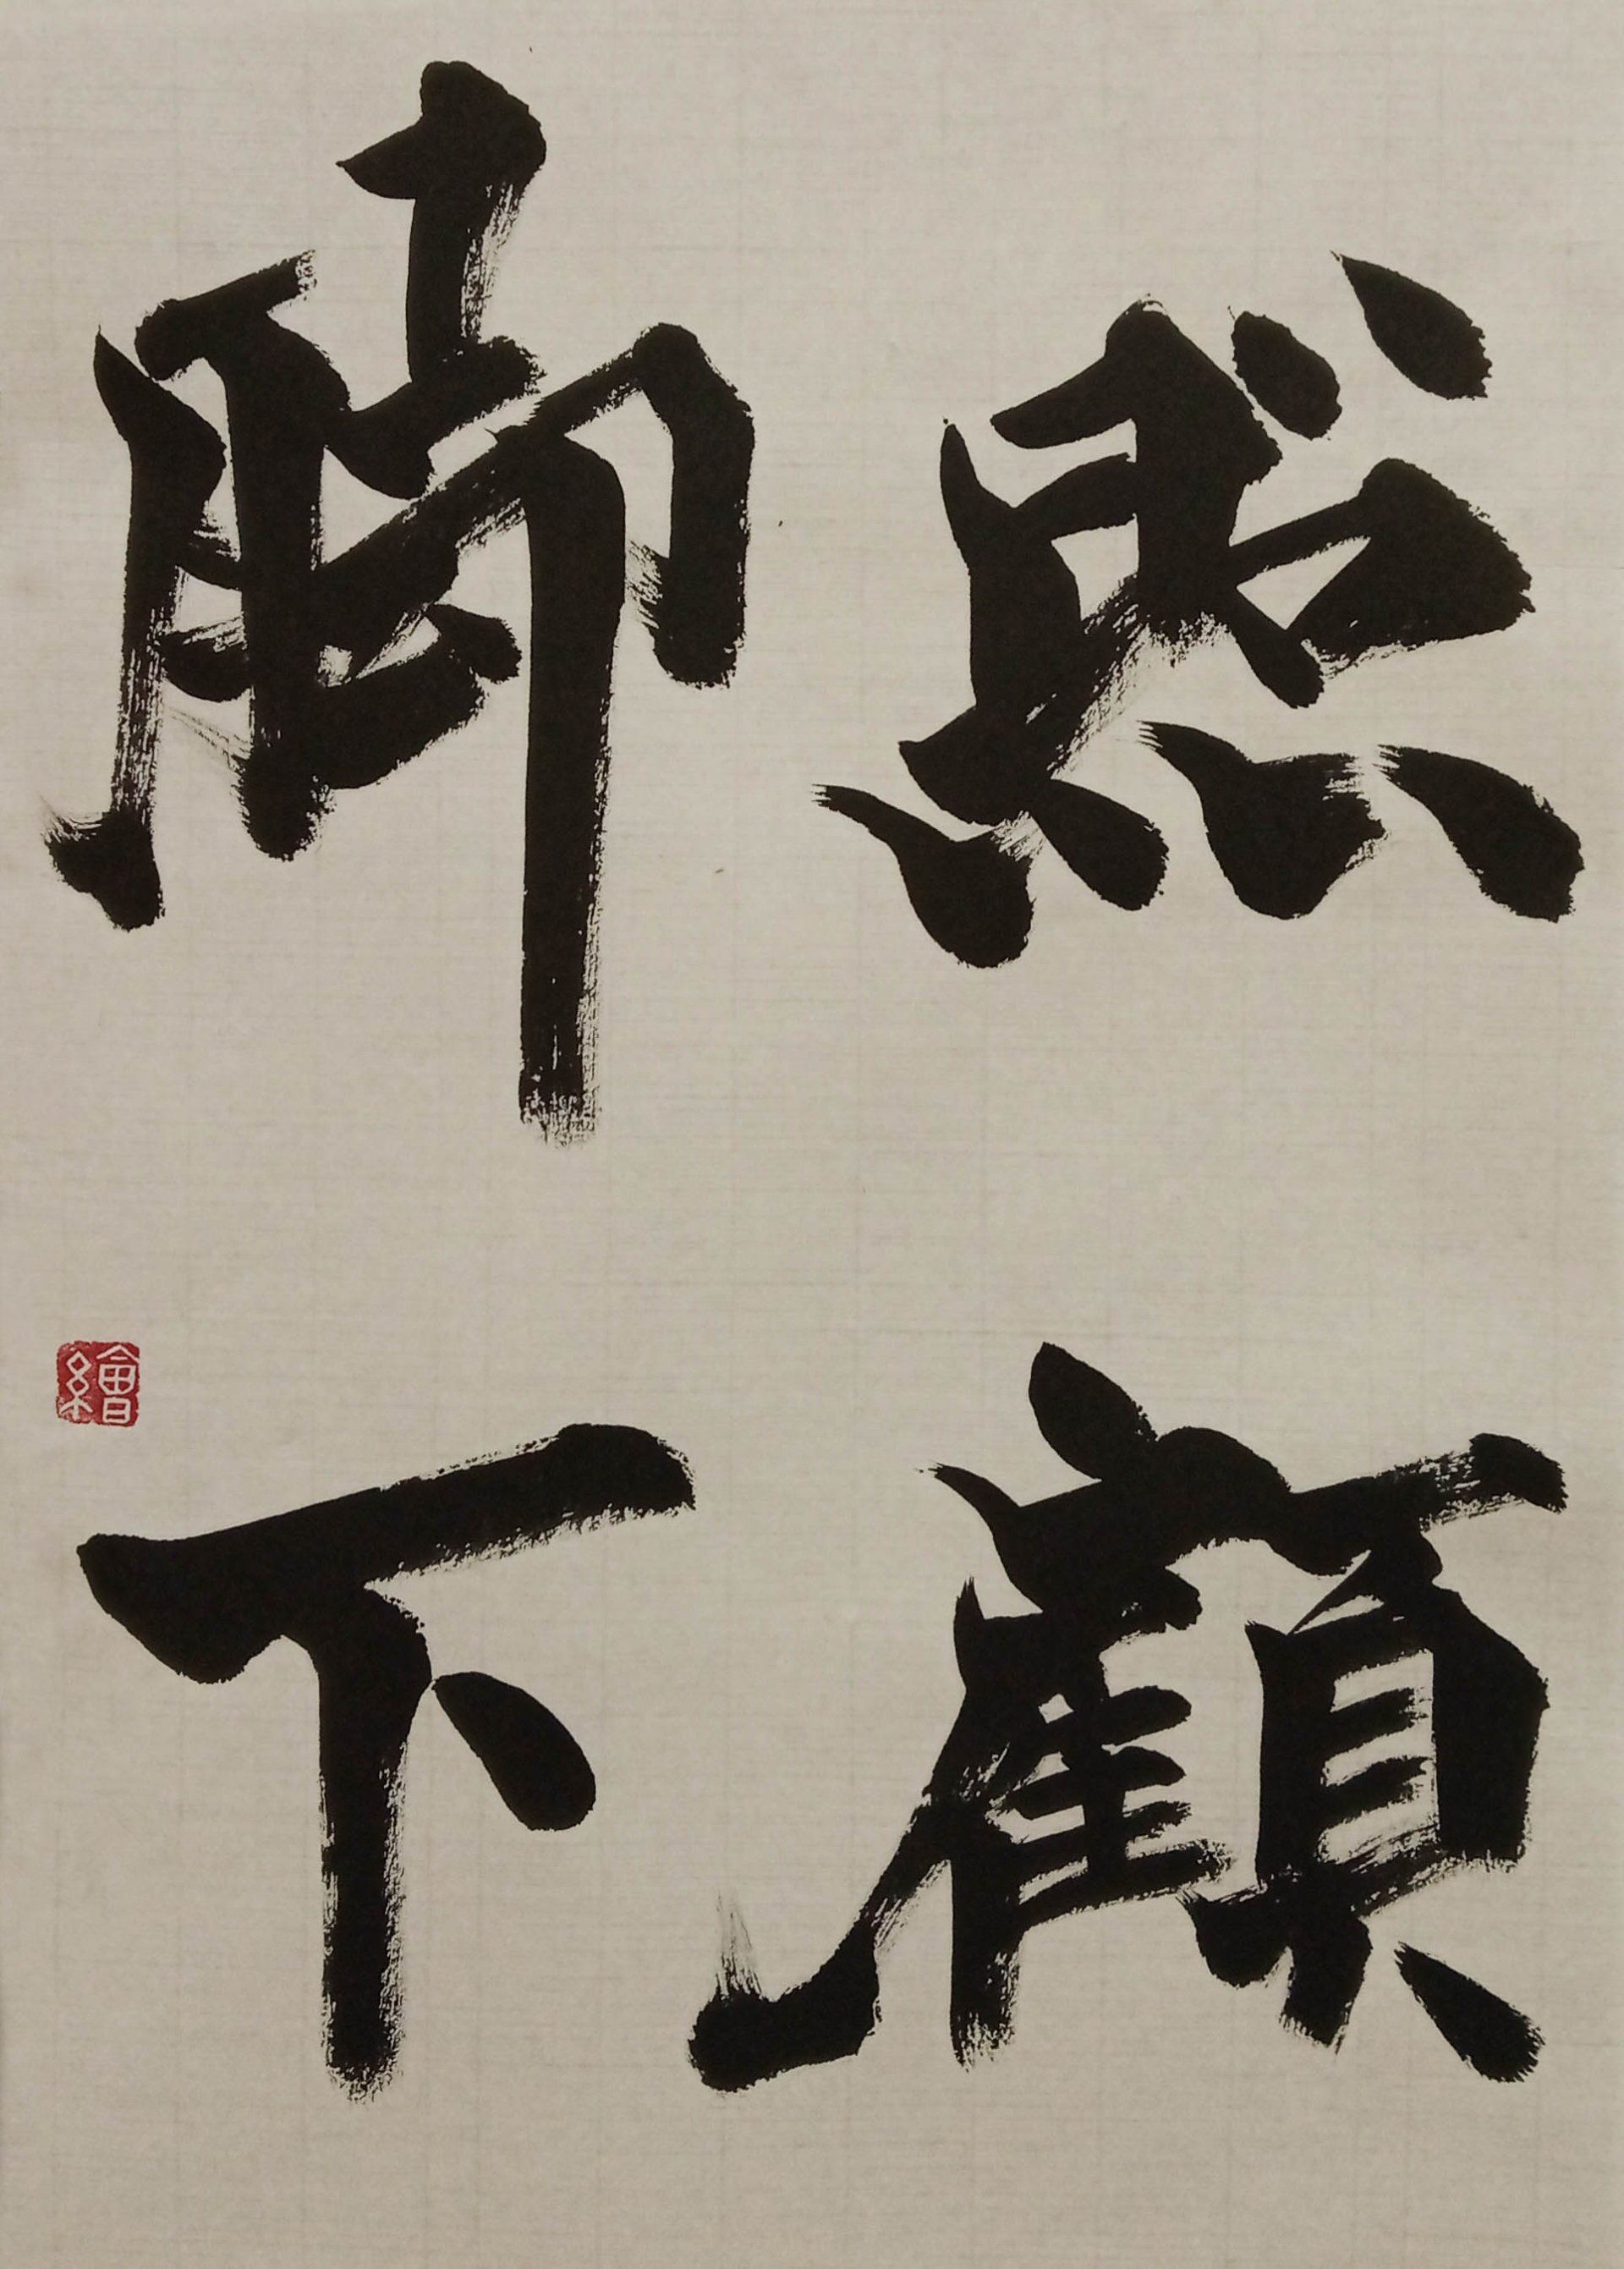 照顧
脚下
繪